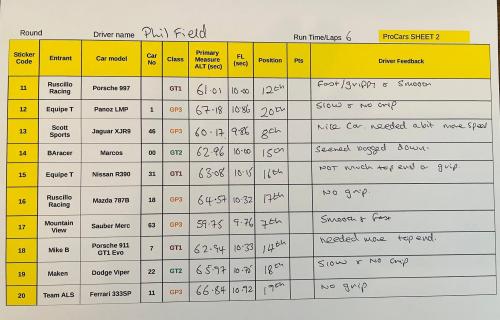 Round Driver name Phil Field Run Time/Laps 6 ProCars SHEET 2
Sticker Code Entrant Car model Car No Class Primary Measure ALT (sec) FL (sec) Position Pts Driver Feedback
11 Ruscillo Racing Porsche 997 GT1 61.01 10.00 12th Fast/grippy & Smooth
12 Equipe T Panoz LMP 1 GP3 67.18 10.86 20th Slow & No Grip
13 Scott Sports Jaguar XJR9 46 GP3 60.17 9.86 8th Nice Car. needed a bit more speed
14 BAracer Marcos 00 GT2 62.96 10.00 15th Seemed bogged down.
15 Equipe T Nissan R390 31 GT1 63.08 10.15 16th Not much top end or grip.
16 Ruscillo Racing Mazda 787B 18 GP3 64.57 10.32 17th No grip.
17 Mountain View Sauber Merc 63 GP3 59.75 9.76 7th Smooth & fast
18 Mike B Porsche 911 GT1 Evo 7 GT1 62.94 10.33 14th needed more top end.
19 Maken Dodge Viper 22 GT2 65.97 10.75 18th Slow & No Grip
20 Team ALS Ferrari 333SP 11 GP3 66.84 10.92 19th No grip